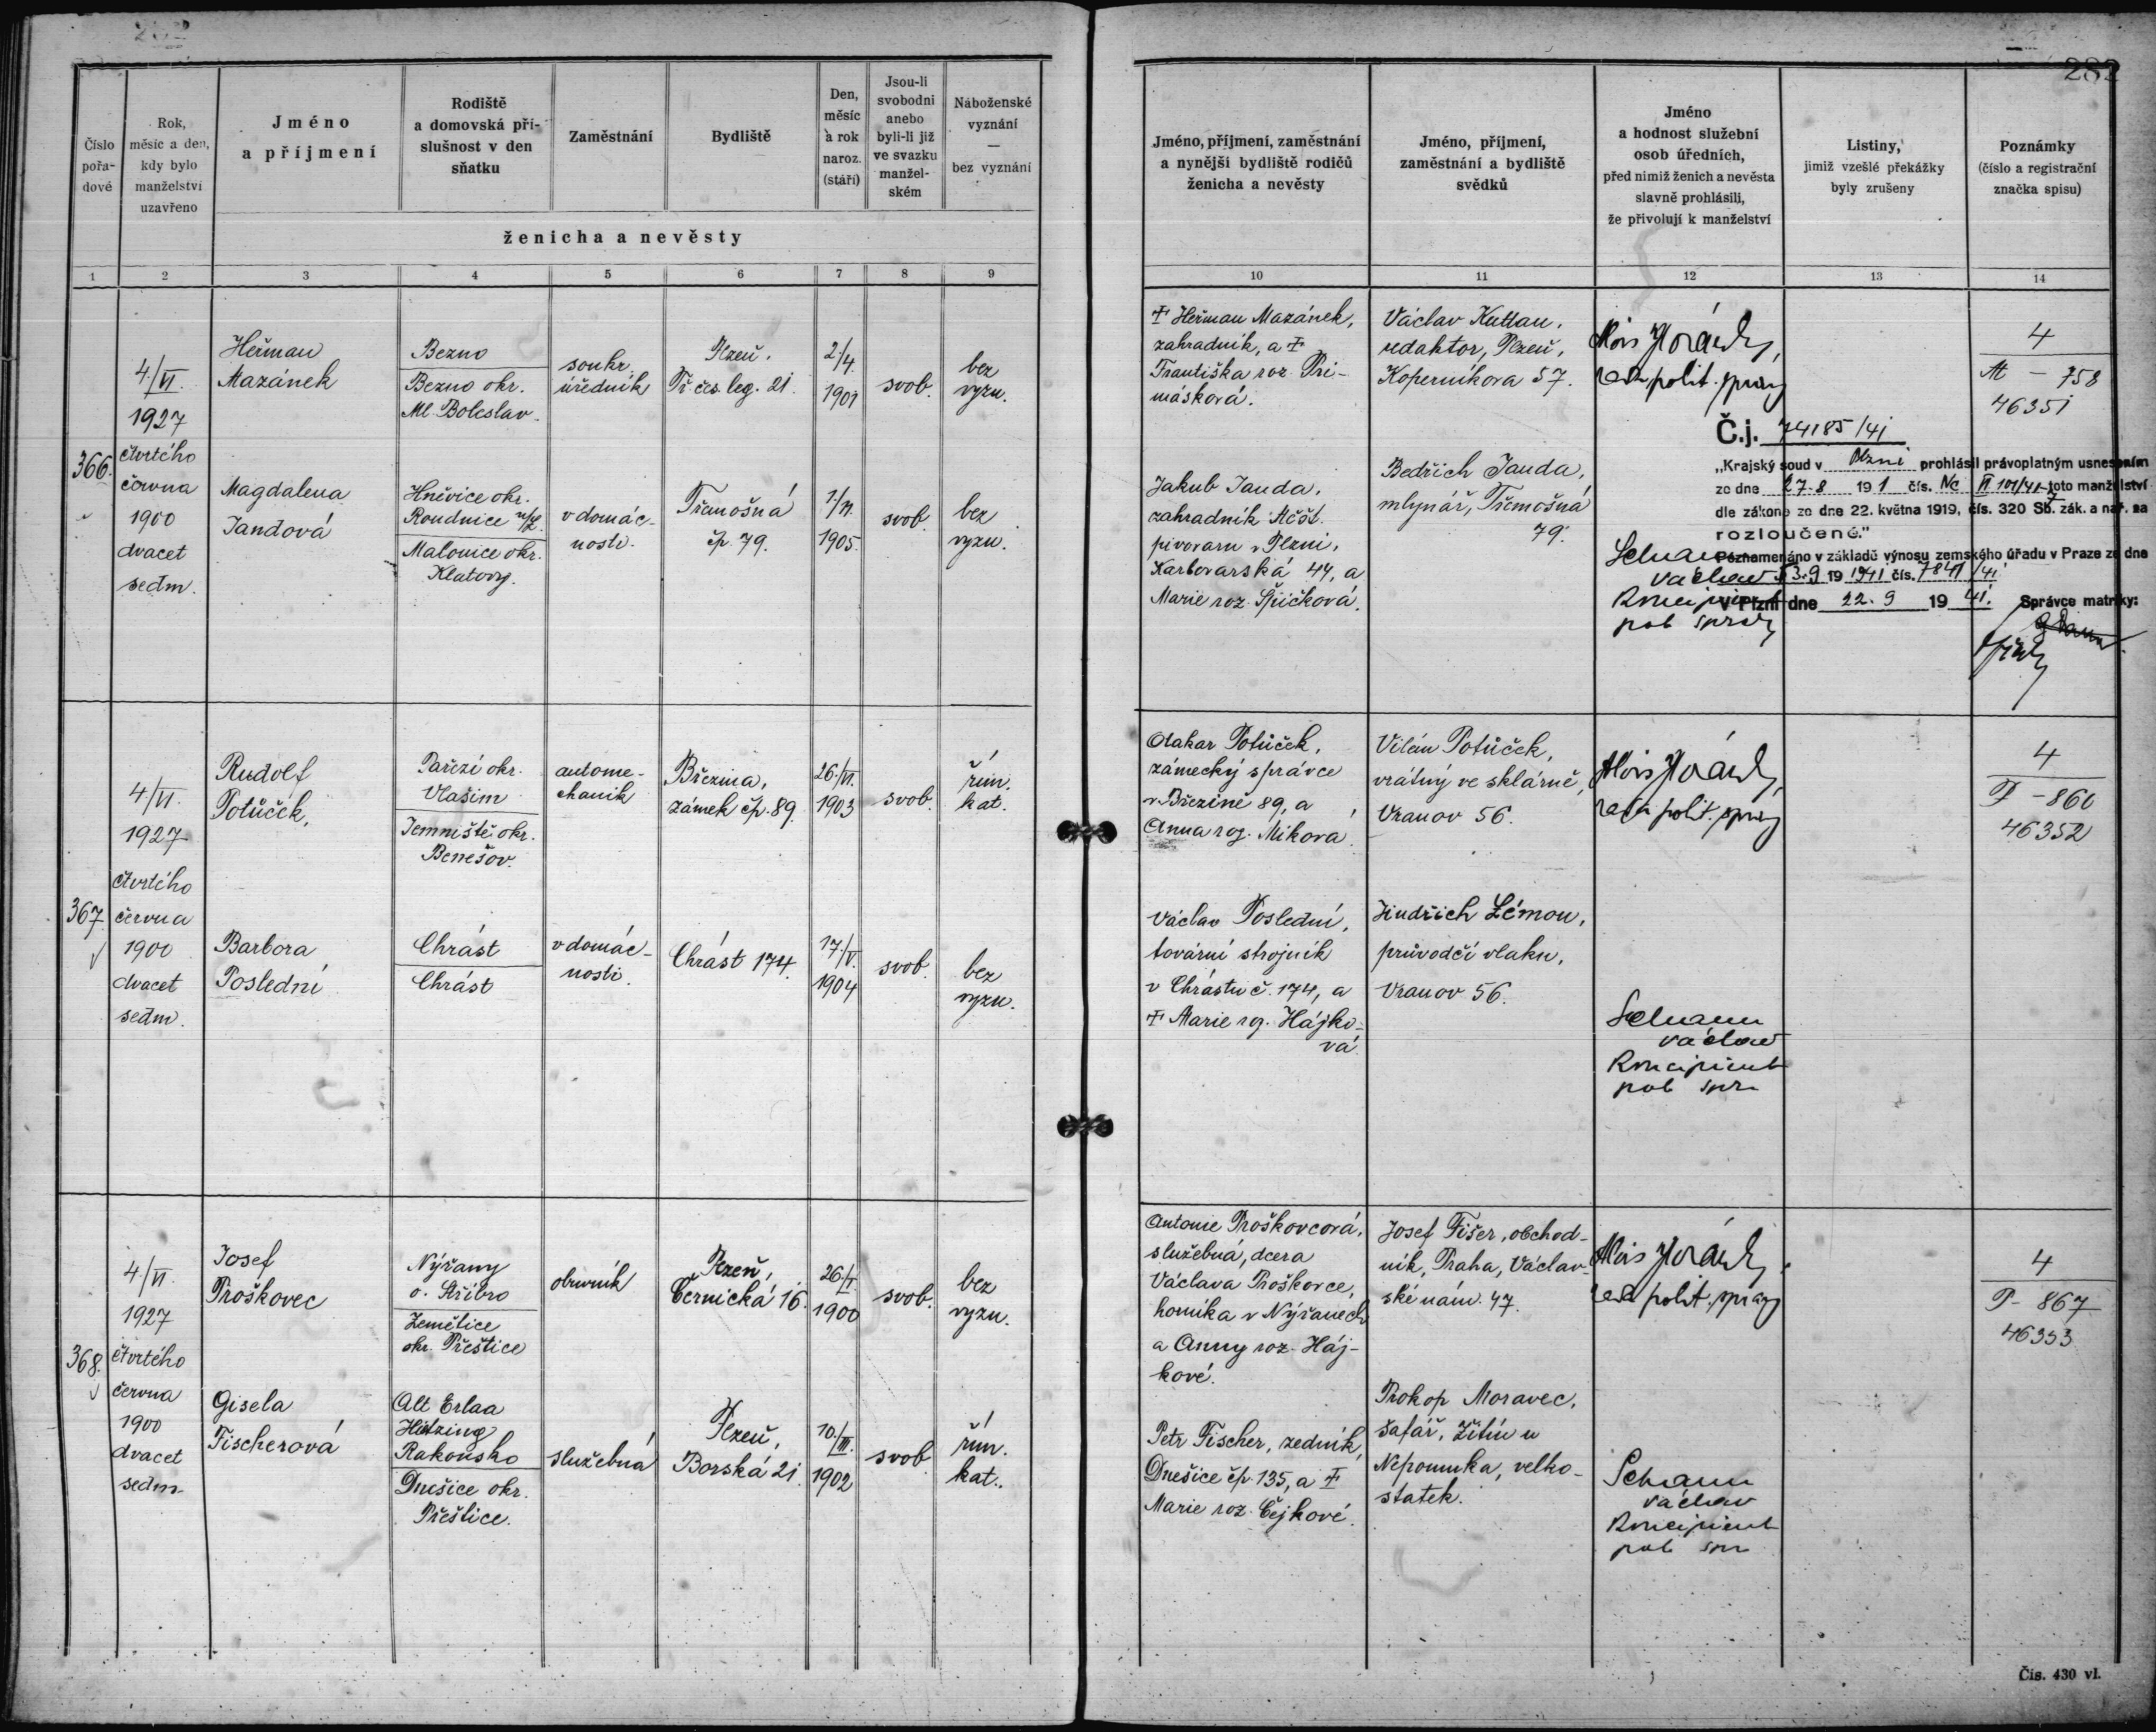 282
Číslo
pořa-
dové
Rok,
měsíc a den,
kdy bylo
manželství
uzavřeno
Jméno
a příjmení
Rodiště
a domovská pří-
slušnost v den
sňatku
Zaměstnání
Bydliště
Den,
měsíc
a rok
naroz.
(stáří)
Jsou-li
svobodni
anebo
byli-li již
ve svazku
manžel-
ském
Náboženské
vyznání
—
bez vyznání
ženicha a nevěsty
Jméno, příjmení, zaměstnání
a nynější bydliště rodičů
ženicha a nevěsty
Jméno, příjmení,
zaměstnání a bydliště
svědků
Jméno
a hodnost služební
osob úředních,
před nimiž ženich a nevěsta
slavně prohlásili,
že přivolují k manželství
Listiny,
jimiž vzešlé překážky
byly zrušeny
Poznámky
(číslo a registrační
značka spisu)
1 2 3 4 5 6 7 8 9 10 11 12 13 14
366.
4./VI.
1927
čtvrtého
června
1900
dvacet
sedm.
Heřman
Mazánek
Bezno
Bezno okr.
Ml. Boleslav.
soukr.
úředník
Plzeň.
Tř. čes. leg. 21.
2./4.
1901
svob.
bez
vyzn.
Magdalena
Jandová
Hněvice okr.
Roudnice n/L.
Malonice okr.
Klatovy.
v domác-
nosti.
Třemošná
čp. 79.
1905.
svob.
bez
vyzn.
Ŧ Heřman Mazánek,
zahradník, a Ŧ
Františka roz. Pri-
másková.
Jakub Janda,
zahradník Měšť.
pivovaru v Plzni,
Karlovarská 44, a
Marie roz. Špičková.
Václav Kuttan,
redaktor, Plzeň,
Koperníkova 57.
Bedřich Janda,
mlynář, Třemošná
79.
Alois
rada polit. správy
Václav
koncipient
pol. správy
4
M - 758
46351
Č.j. 74185/41
„Krajský soud v Plzni prohlásil právoplatným usnesením
ze dne 27.8 191 čís. Nc VI 101/41 toto manželství
dle zákona ze dne 22. května 1919, čís. 320 Sb. zák. a nař. za
rozloučené."
Poznamenáno v základě výnosu zemského úřadu v Praze ze dne
19 1941 čís. 7841/41
V Plzni dne 22.9 19 41. Správce matriky:
367.
4/VI.
1927
čtvrtého
června
1900
dvacet
sedm.
Rudolf
Potůček,
Pařezí okr.
Vlašim
Jemniště okr.
Benešov.
autome-
chanik
Březina,
zámek čp. 89.
26./VI.
1903
svob.
řím.
kat.
Barbora
Poslední
Chrást
Chrást
v domác-
nosti.
Chrást 174.
17./V.
1904
svob.
bez
vyzn.
Otakar Potůček,
zámecký správce
v Březině 89, a
Anna roz. Míková.
Václav Poslední,
tovární strojník
v Chrástu č. 174, a
Ŧ Marie roz. Hájko-
vá.
Vilém Potůček,
vrátný ve sklárně,
Vranov 56.
Jindřich Lémon,
průvodčí vlaku,
Vranov 56.
Alois
rada polit. správy
Václav
koncipient
pol. spr.
4
P - 860
46352
368.
4/VI.
1927
čtvrtého
června
1900
dvacet
sedm.
Josef
Proškovec
Nýřany
o. Stříbro
Zemětice
okr. Přeštice
obuvník
Plzeň,
Černická 16.
26./I.
1900
svob.
bez
vyzn.
Gisela
Fischerová
Alt Erlaa
Hietzing
Rakousko
Dnešice okr.
Přeštice.
služebná
Plzeň,
Borská 21.
10./III.
1902
svob.
řím.
kat.
Antonie Proškovcová,
služebná, dcera
Václava Proškovce,
horníka v Nýřanech
a Anny roz. Háj-
kové.
Petr Fischer, zedník,
Dnešice čp. 135, a Ŧ
Marie roz. Čejkové.
Josef Fišer, obchod-
ník, Praha, Václav-
ské nám. 47.
Prokop Moravec,
šafář, Žitín u
Nepomuka, velko-
statek.
Alois
rada polit. správy
Václav
koncipient
pol. spr.
4
P - 867
46353
Čís. 430 vl.